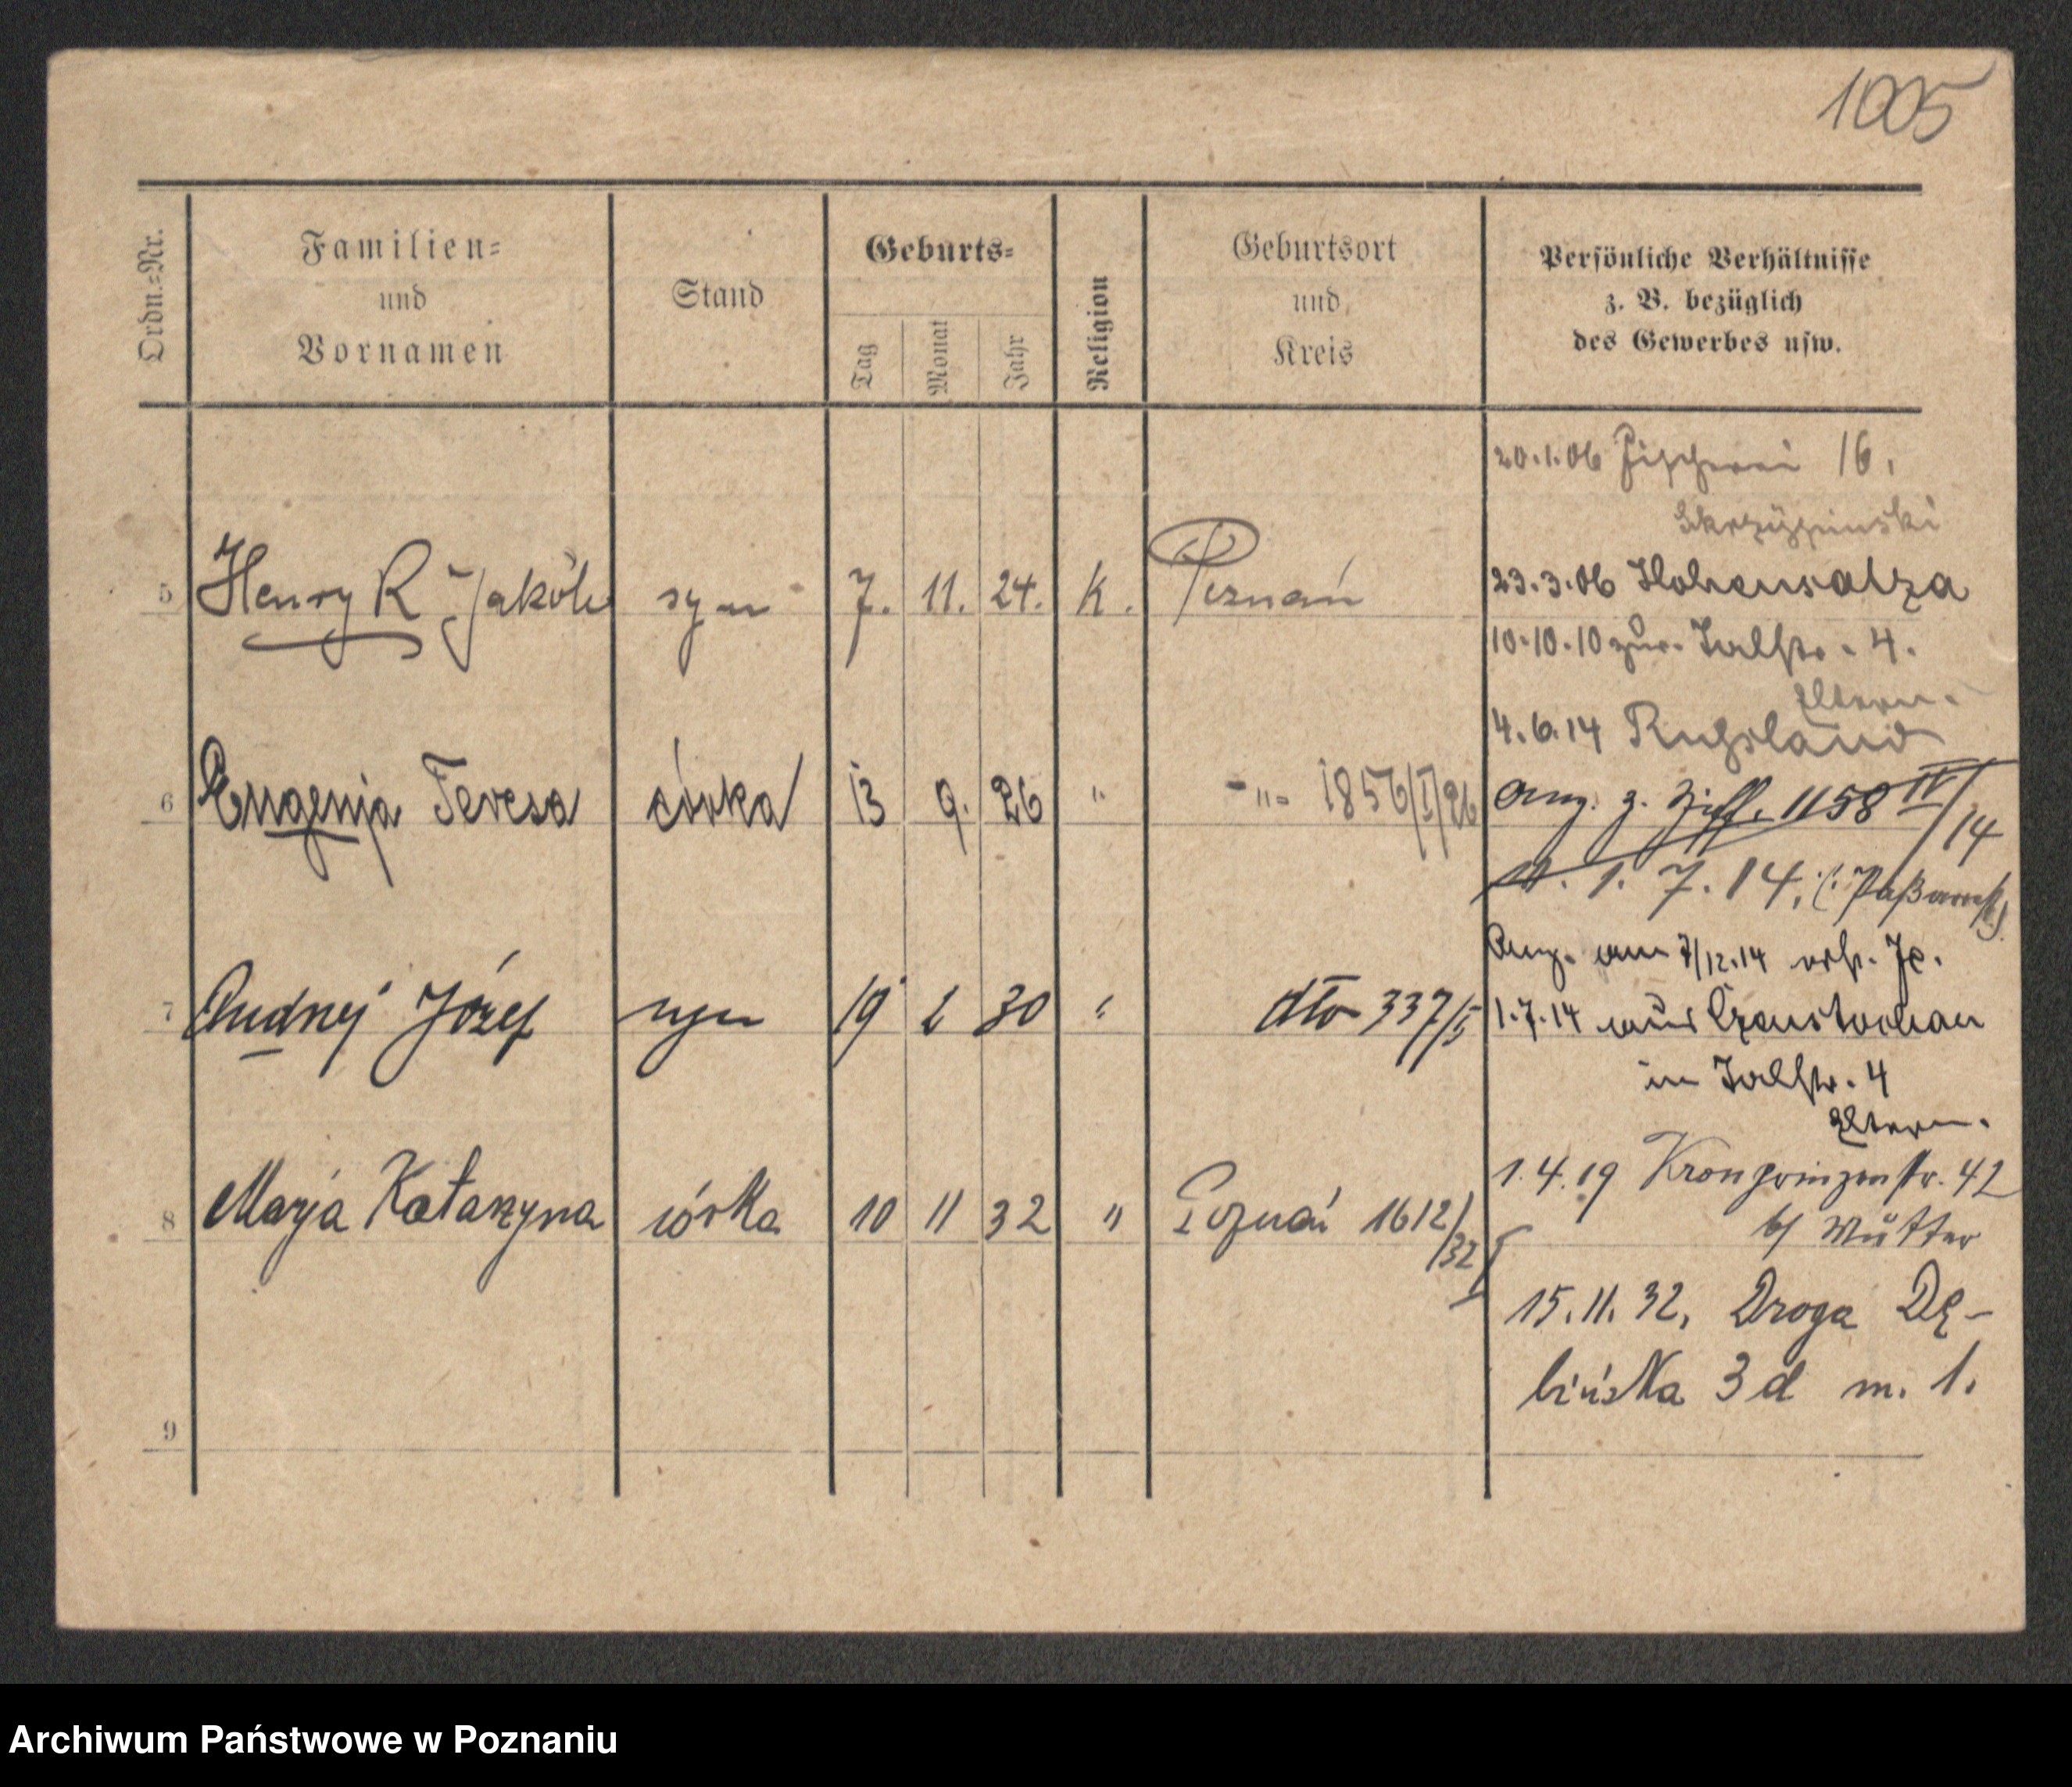 1005
Ordn.=Nr.
Familien=
und
Vornamen
Stand
Geburts=
Tag
Monat
Jahr
Religion
Geburtsort
und
Kreis
Persönliche Verhältnisse
z. B. bezüglich
des Gewerbes usw.
20.1.06 Fischerei 16.
5 Henryk Jakób syn 7. 11. 24. k. Poznań
23.3.06 Hohensalza
10.10.10 zur. Talstr. 4.
Eltern.
4.6.14 Russland
6 Eugenja Teresa córka 13 9. 26 " -"- 1856/I/26
Ang. z. Ziff. 1158 IV/14
1.7.14.
7 Andrzej Józef syn 19 2 30 " dto 337/
Ang. am 7/12.14
1.7.14 aus Czenstochau
in Talstr. 4
Eltern.
8 Marja Katarzyna córka 10 11 32 " Poznań 1612/32
1.4.19 Kronprinzenstr. 42
b/ Mutter
15.11.32, Droga Dę-
bińska 3d m. 1.
9
Archiwum Państwowe w Poznaniu